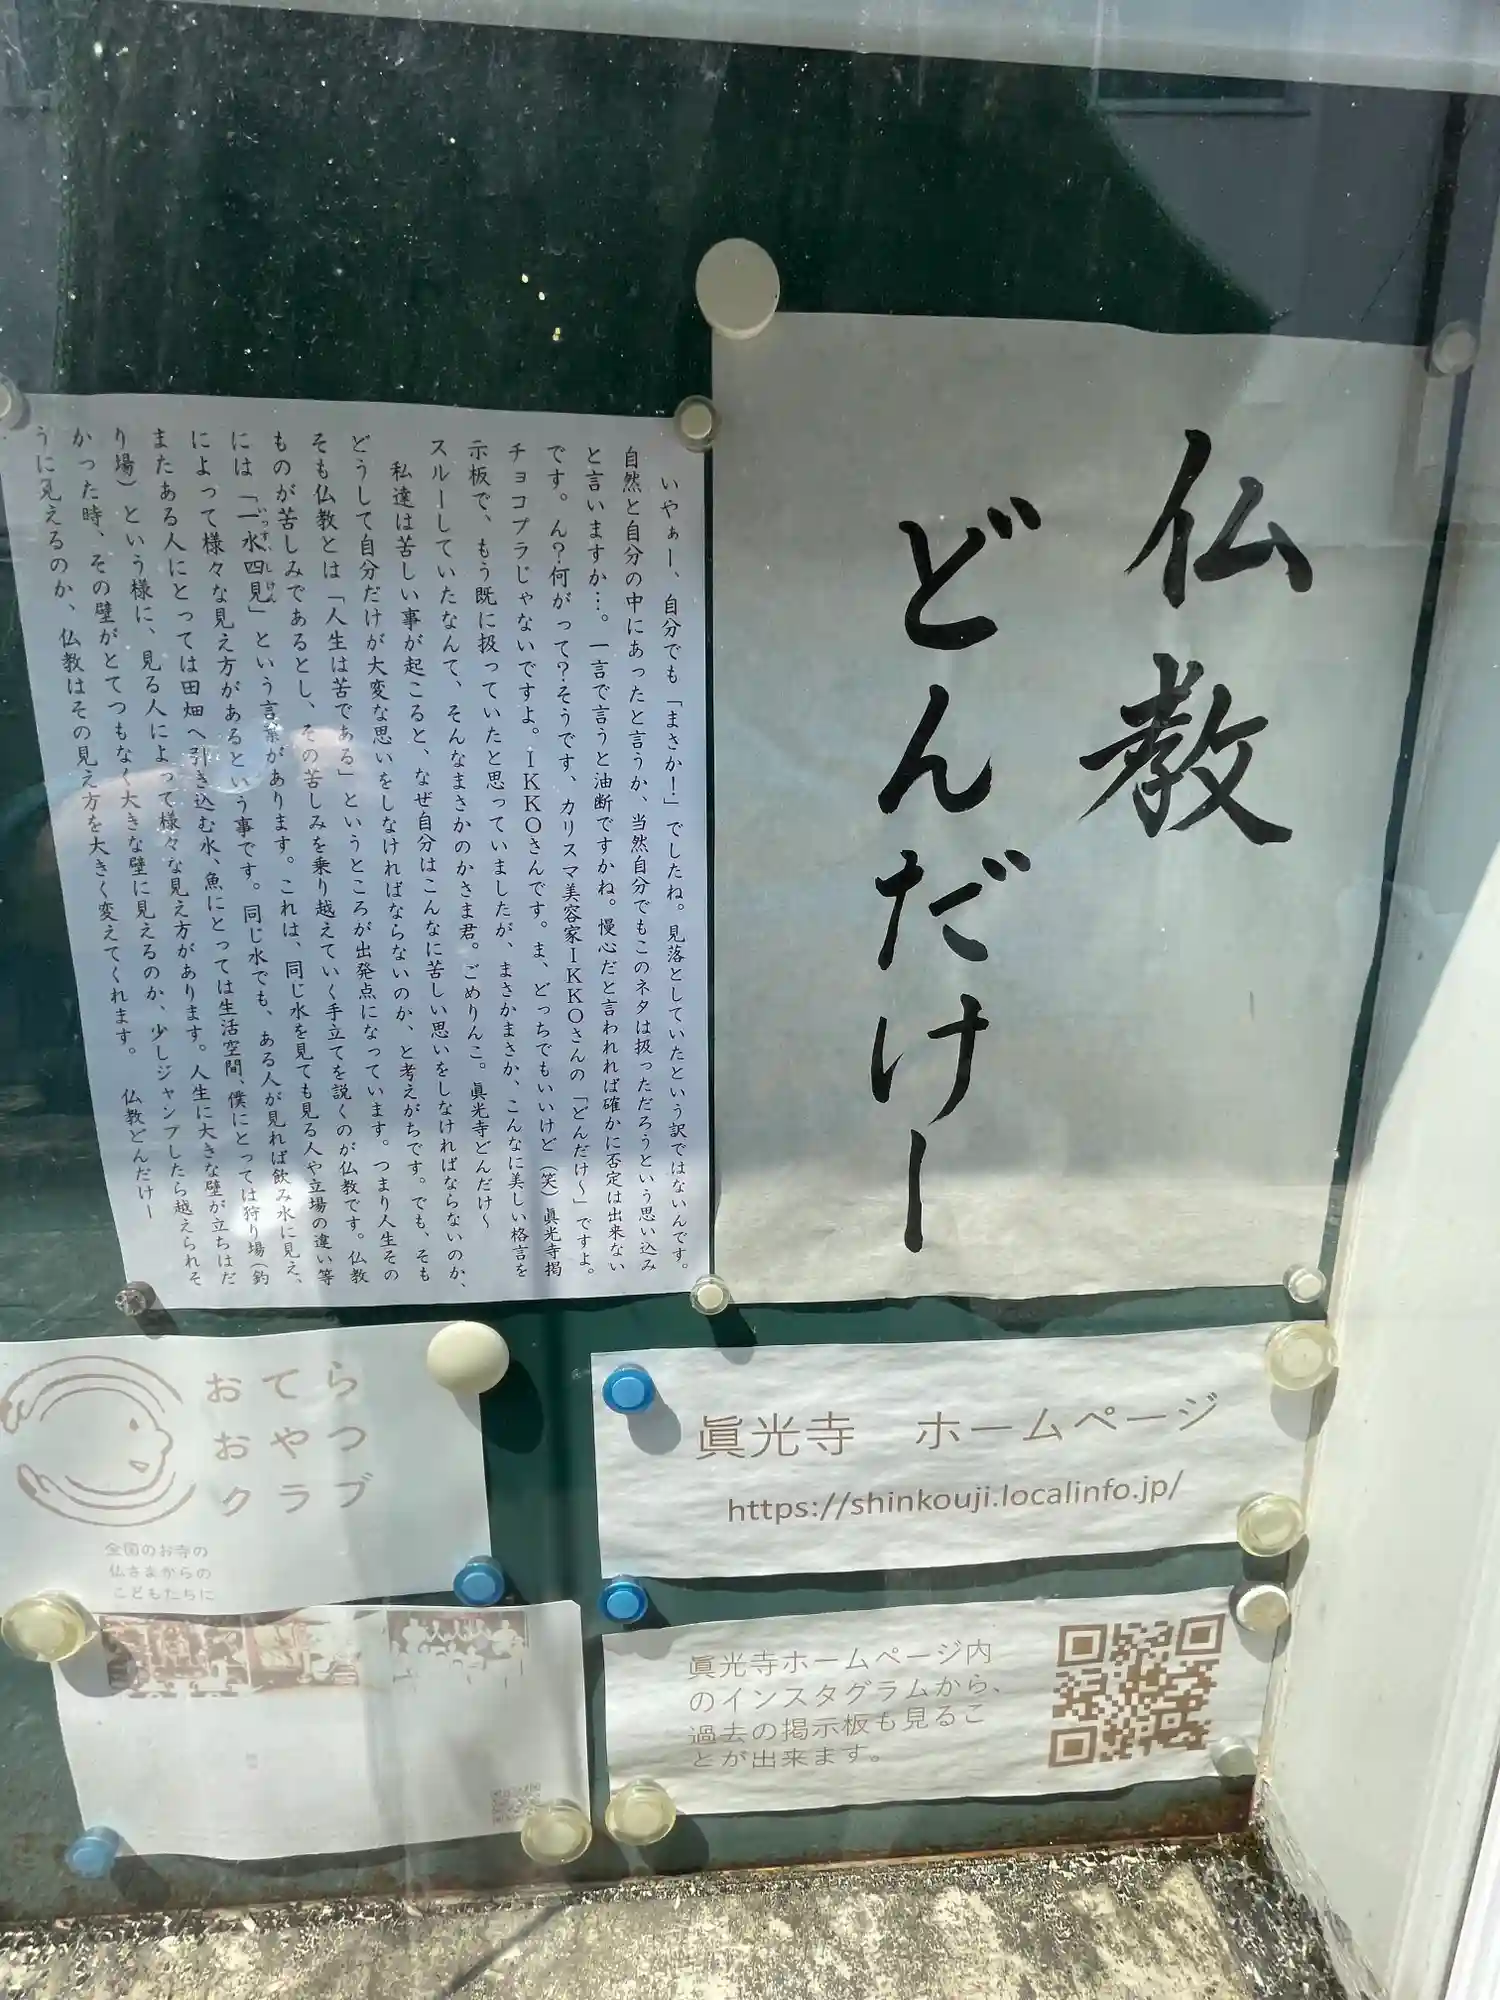 仏教
どんだけー
いやぁー、自分でも「まさか！」でしたね。見落としていたという訳ではないんです。
自然と自分の中にあったと言うか、当然自分でもこのネタは扱っただろうという思い込み
と言いますか…。一言で言うと油断ですかね。慢心だと言われれば確かに否定は出来ない
です。ん？何がって？そうです、カリスマ美容家IKKOさんの「どんだけ～」ですよ。
チョコプラじゃないですよ。IKKOさんです。ま、どっちでもいいけど（笑）眞光寺掲
示板で、もう既に扱っていたと思っていましたが、まさかまさか、こんなに美しい格言を
スルーしていたなんて、そんなまさかのかさま君。ごめりんこ。眞光寺どんだけ～
私達は苦しい事が起こると、なぜ自分はこんなに苦しい思いをしなければならないのか、
どうして自分だけが大変な思いをしなければならないのか、と考えがちです。でも、そも
そも仏教とは「人生は苦である」というところが出発点になっています。つまり人生その
ものが苦しみであるとし、その苦しみを乗り越えていく手立てを説くのが仏教です。仏教
には「一水四見」という言葉があります。これは、同じ水を見ても見る人や立場の違い等
いっすいしけん
によって様々な見え方があるという事です。同じ水でも、ある人が見れば飲み水に見え、
またある人にとっては田畑へ引き込む水、魚にとっては生活空間、僕にとっては狩り場（釣
り場）という様に、見る人によって様々な見え方があります。人生に大きな壁が立ちはだ
かった時、その壁がとてつもなく大きな壁に見えるのか、少しジャンプしたら越えられそ
うに見えるのか、仏教はその見え方を大きく変えてくれます。　仏教どんだけー
おてら
おやつ
クラブ
全国のお寺の
仏さまからの
こどもたちに
眞光寺　ホームページ
https://shinkouji.localinfo.jp/
眞光寺ホームページ内
のインスタグラムから、
過去の掲示板も見るこ
とが出来ます。